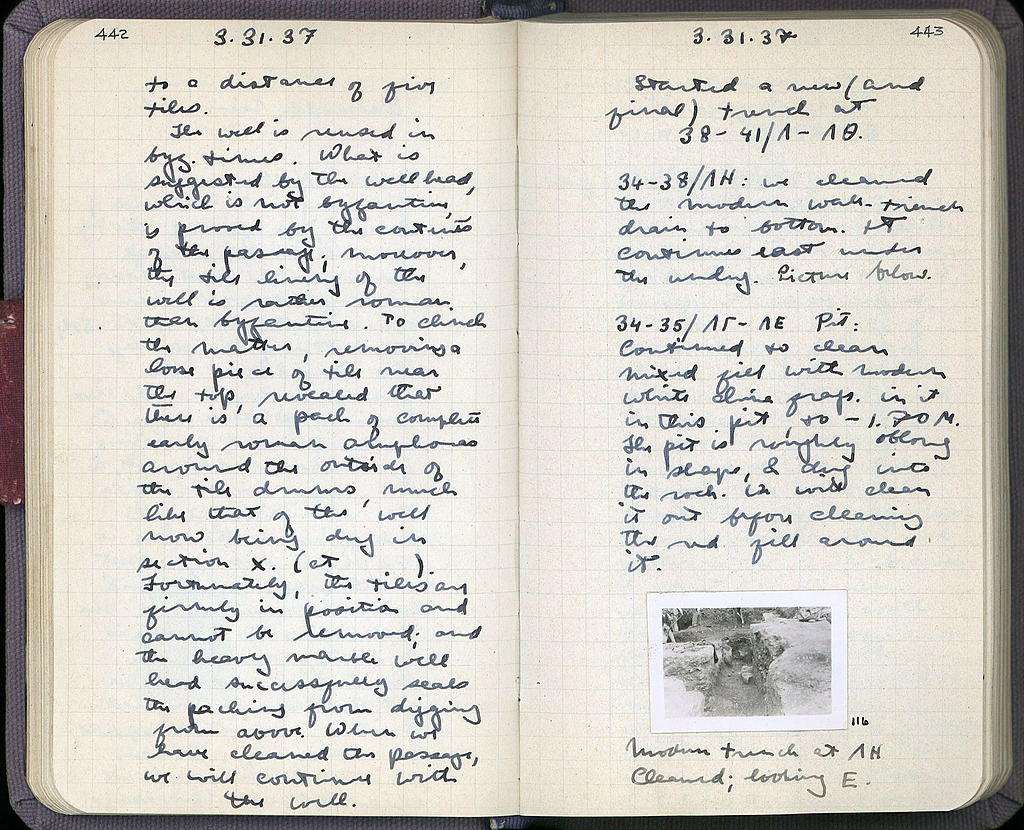 442
3.31.37
to a distance of five
tiles.
The well is reused in
byz. times. What is
suggested by the wellhead,
which is not byzantine,
is proved by the contents
of the passage; moreover,
the tile lining of the
well is rather roman
than byzantine. To clinch
the matter, removing a
loose piece of tile near
the top, revealed that
there is a pack of complete
early roman amphoras
around the outside of
the tile drums, much
like that of the well
now being dug in
section X. (at          )
Fortunately, the tiles are
firmly in position and
cannot be removed; and
the heavy marble well
head successfully seals
the packing from digging
from above. When we
have cleaned the passage,
we will continue with
the well.
443
3.31.37
Started a new (and
final) trench at
38-41/Λ-ΛΘ.
34-38/ΛΗ: we cleaned
the modern wall-trench
drain to bottom. It
continues east under
the unding. Picture below.
34-35/ΛΓ-ΛΕ Pit:
Continued to clean
mixed fill with modern
white china frags. in it
in this pit, to -1.70 M.
The pit is roughly oblong
in shape, & dug into
the rock. We will clean
it out before cleaning
the red fill around
it.
116
Modern trench at ΛΗ
Cleaned; looking E.